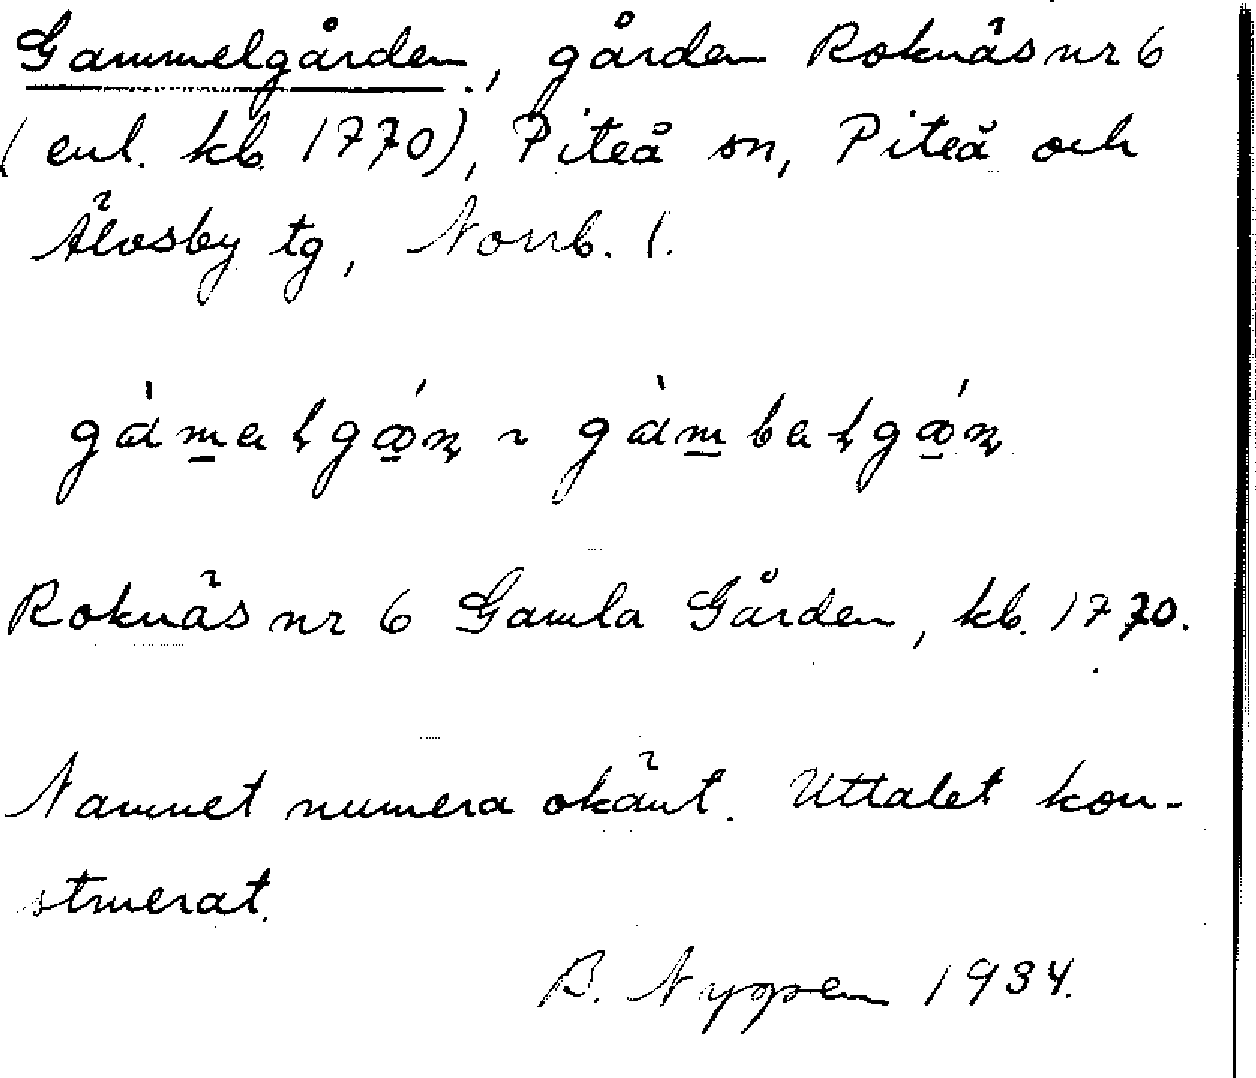 Gammelgården, gården Roknäs nr 6
(enl. kb. 1770), Piteå sn, Piteå och
Älvsby tg, Norrb. l.
Roknäs nr 6 Gamla Gården, kb. 1770.
Namnet numera okänt. Uttalet kon-
struerat.
B. 1934.